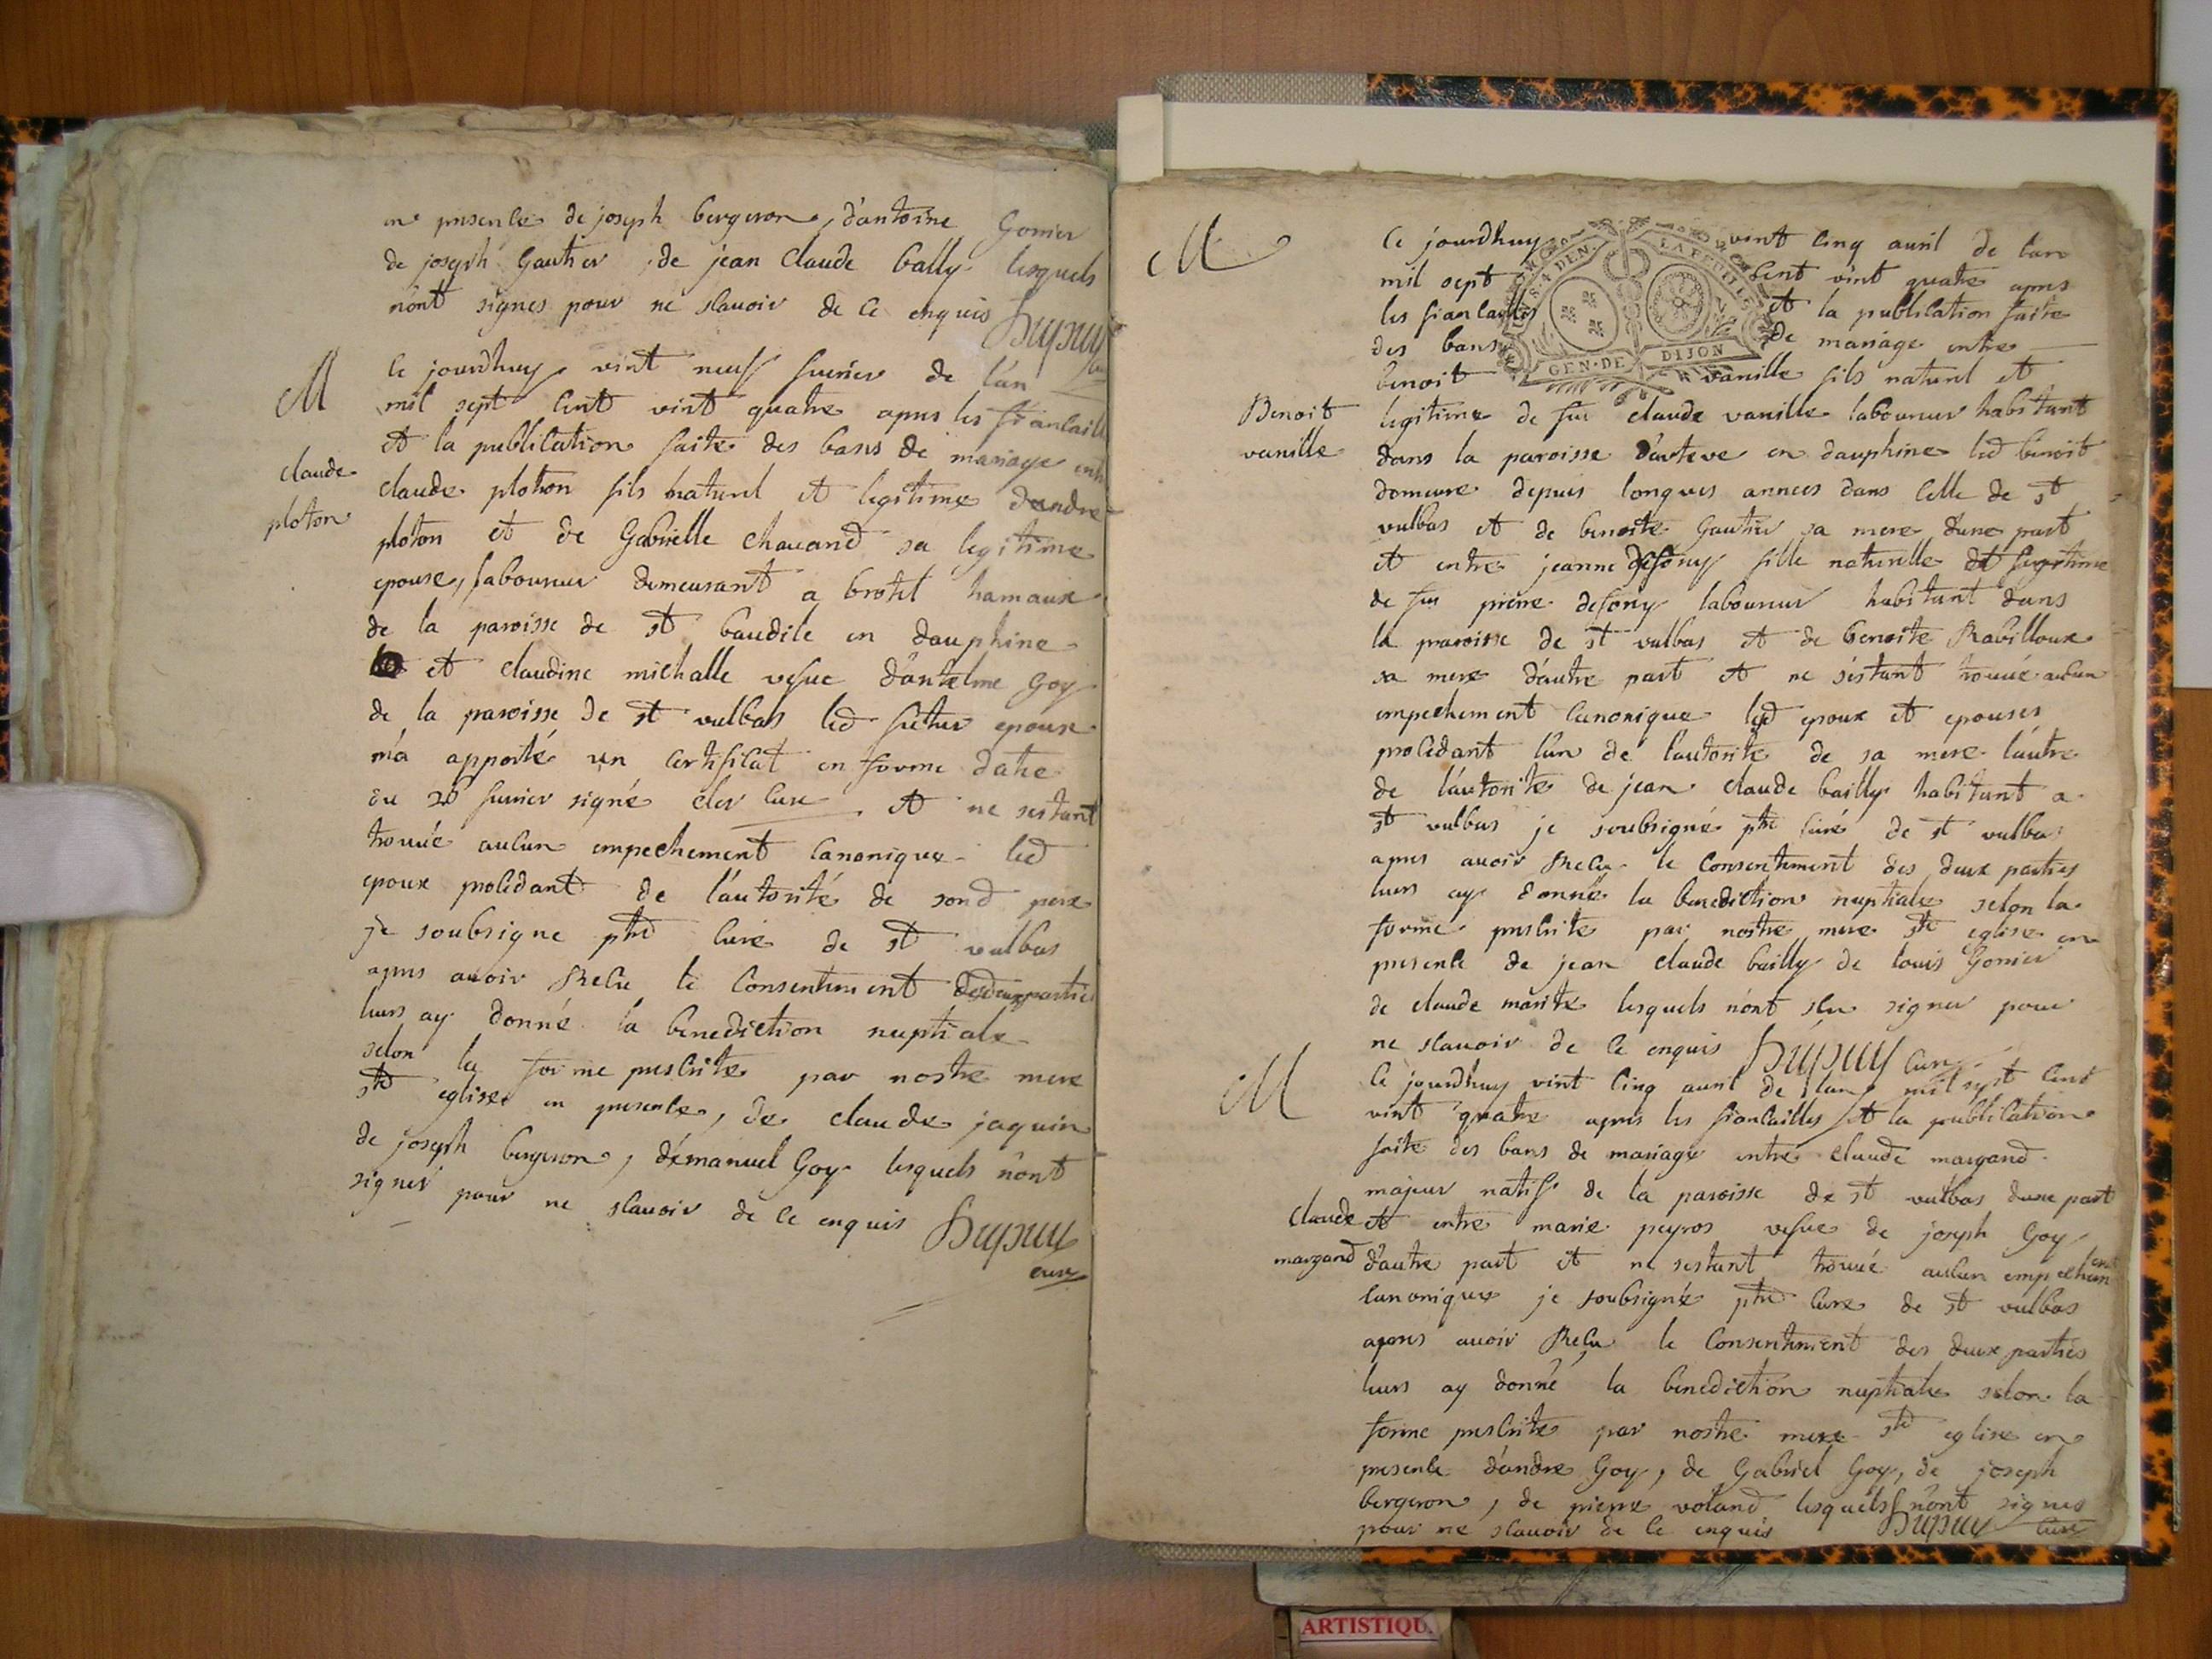 en presence de joseph bergeron, d'antoine Gonier
de joseph Gautier, de jean claude bally lesquels
n'ont signes pour ne scavoir de ce enquis Dupuy
M ce jourdhuy vint neuf fevrier de l'an
mil sept cent vint quatre apres les fiancaill
et la publication faite des bans de mariage entre
claude
claude ploton fils naturel et legitime dandre
ploton
ploton et de Gabrielle chavand sa legitime
epouse, laboureur demeurant a brotel hamaux
de la paroisse de st baudile en dauphine
et claudine michalle vefve d'antelme Goy
de la paroisse de st vulbas led futur epoux
m'a apporté un certificat en forme date
du 28 fevrier signé cler cure et ne sestant
trouvé aucun empechement canonique led
epoux procedant de l'autorité de sond pere
je soubsigne ptre cure de st vulbas
apres avoir Recu le consentement desdeux parties
leurs ay donné la benediction nuptiale
selon la forme prescrite par nostre mere
ste eglise en presence, de claude jaquin
de joseph bergeron, d'emanuel Goy lesquels n'ont
signer pour ne scavoir de ce enquis Dupuy
cure
M ce jourdhuy vint cinq avril de lan
mil sept cent vint quatre apres
les fiancailles et la publication faite
des bans de mariage entre
benoit vanille fils naturel et
S·4 DEN· LA FEUILLE
GEN·DE DIJON
Benoit
vanille
legitime de feu claude vanille laboureur habitant
dans la paroisse d'arteve en dauphine led benoit
demeure depuis longues annees dans celle de st
vulbas et de benoite Gautier sa mere dune part
et entre jeanne defony fille naturelle et legitime
de feu pierre defony laboureur habitant dans
la paroisse de st vulbas et de benoite Rabilloux
sa mere d'autre part et ne s'estant trouvé aucun
empechement canonique led epoux et epouses
procedant l'un de l'autorite de sa mere l'autre
de l'autorite de jean claude bailly habitant a
st vulbas je soubsigné ptre curé de st vulbas
apres avoir Recu le consentement des deux parties
leurs ay donné la benediction nuptiale selon la
forme prescrite par nostre mere ste eglise en
presence de jean claude bailly de louis Gonier
de claude marite lesquels n'ont sceu signer pour
ne scavoir de ce enquis Dupuy cure
M ce jourdhuy vint cinq avril de lan mil sept cent
vint quatre apres les fiancailles et la publication
faite des bans de mariage entre claude margand
majeur natif de la paroisse de st vulbas dune part
claude
margand
et entre marie peyros vefve de joseph Goy
d'autre part et ne sestant trouvé aucun empechement
canonique je soubsigné ptre cure de st vulbas
apres avoir Recu le consentement des deux parties
leurs ay donné la benediction nuptiale selon la
forme prescrite par nostre mere ste eglise en
presence d'andre Goy, de Gabriel Goy, de joseph
bergeron, de pierre voland lesquels n'ont signes
pour ne scavoir de ce enquis Dupuy cure
ARTISTIQU